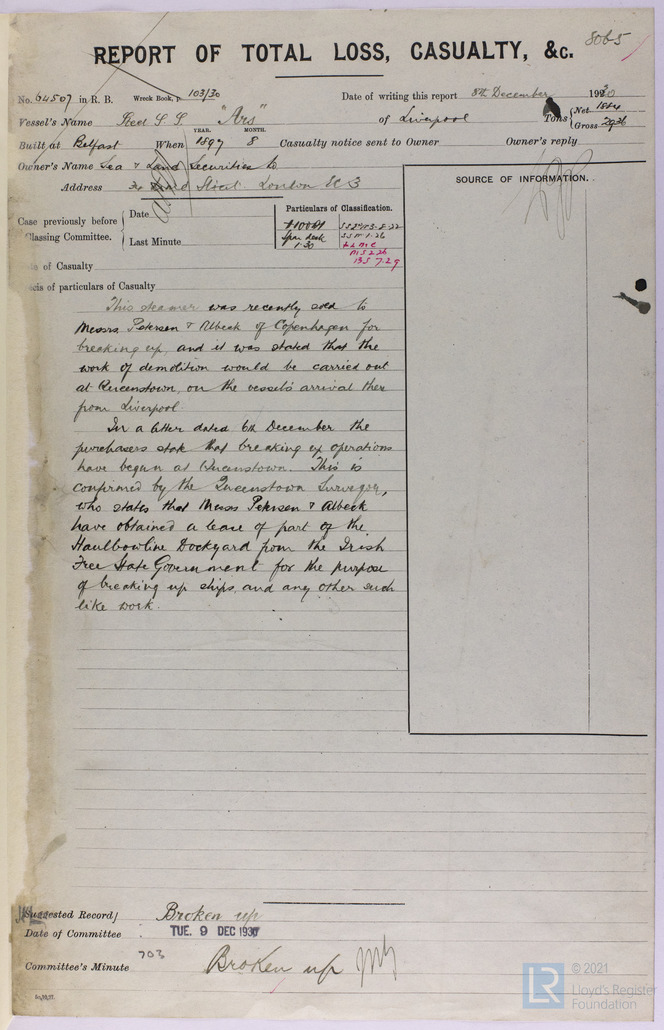 8065
REPORT OF TOTAL LOSS, CASUALTY, &c.
No. 64507 in R. B. Wreck Book, p. 103/30 Date of writing this report 8th December 1930
Vessel's Name Steel S S. "Ars" of Liverpool Tons { Net
Gross
YEAR. MONTH.
Built at Belfast When 1897 8 Casualty notice sent to Owner Owner's reply
Owner's Name Sea & Land Securities Co
Address Street London EC3
SOURCE OF INFORMATION.
Case previously before Classing Committee. { Date
Last Minute
Particulars of Classification.
+100A1
Spar deck
1.30
SSNo1-1.26
+LMC
MS 2.26
BS 7.29
of Casualty
of particulars of Casualty
This steamer was recently sold to
Messrs Petersen & Albeck of Copenhagen for
breaking up, and it was stated that the
work of demolition would be carried out
at Queenstown, on the vessel's arrival there
from Liverpool.
In a letter dated 6th December the
purchasers state that breaking up operations
have begun at Queenstown. This is
confirmed by the Queenstown Surveyor,
who states that Messrs Petersen & Albeck
have obtained a lease of part of the
Haulbowline Dockyard from the Irish
Free State Government for the purpose
of breaking up ships, and any other such
like work.
Suggested Record} Broken up
Date of Committee TUE. 9 DEC 1930
703
Committee's Minute Broken up
LR © 2021
Lloyd's Register
Foundation